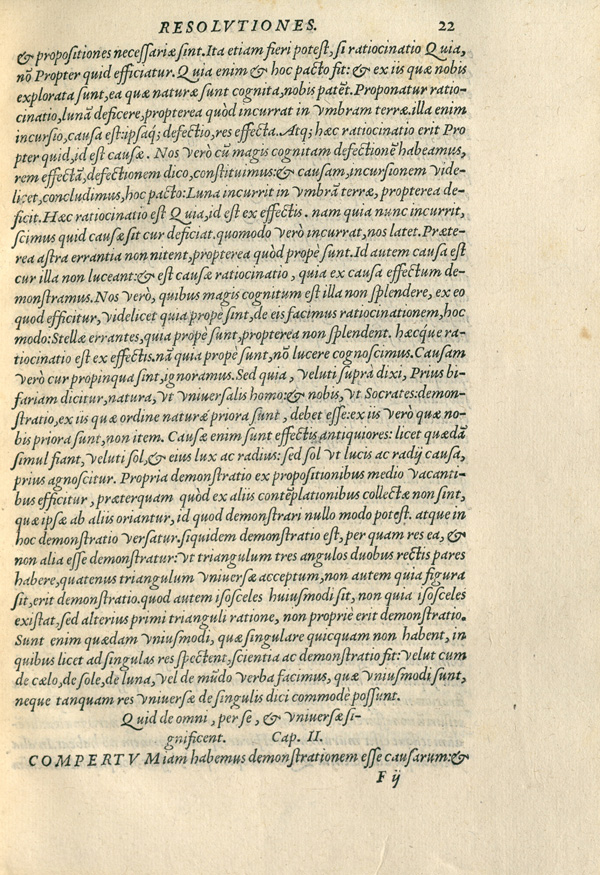 RESOLVTIONES. 22
& propositiones necessariæ sint. Ita etiam fieri potest, si ratiocinatio Quia,
nõ Propter quid efficiatur. Quia enim & hoc pacto fit: & ex iis quæ nobis
explorata sunt, ea quæ naturæ sunt cognita, nobis patẽt. Proponatur ratio-
cinatio, lunã deficere, propterea quòd incurrat in vmbram terræ. illa enim
incursio, causa est: ipsaq́; defectio, res effecta. Atq; hæc ratiocinatio erit Pro
pter quid, id est causæ. Nos verò cũ magis cognitam defectionẽ habeamus,
rem effectã, defectionem dico, constituimus: & causam, incursionem vide-
licet, concludimus, hoc pacto: Luna incurrit in vmbrã terræ, propterea de-
ficit. Hæc ratiocinatio est Quia, id est ex effectis. nam quia nunc incurrit,
scimus quid causæ sit cur deficiat. quomodo verò incurrat, nos latet. Præte-
rea astra errantia non nitent, propterea quòd propè sunt. Id autem causa est
cur illa non luceant: & est causæ ratiocinatio, quia ex causa effectum de-
monstramus. Nos verò, quibus magis cognitum est illa non splendere, ex eo
quod efficitur, videlicet quia propè sint, de eis facimus ratiocinationem, hoc
modo: Stellæ errantes, quia propè sunt, propterea non splendent. hæcque ra-
tiocinatio est ex effectis. nã quia propè sunt, nõ lucere cognoscimus. Causam
verò cur propinqua sint, ignoramus. Sed quia, veluti suprà dixi, Prius bi-
fariam dicitur, natura, vt vniuersalis homo: & nobis, vt Socrates: demon-
stratio, ex iis quæ ordine naturæ priora sunt, debet esse: ex iis verò quæ no-
bis priora sunt, non item. Causæ enim sunt effectis antiquiores: licet quædã
simul fiant, veluti sol, & eius lux ac radius: sed sol vt lucis ac radij causa,
prius agnoscitur. Propria demonstratio ex propositionibus medio vacanti-
bus efficitur, præterquam quòd ex aliis contẽplationibus collectæ non sint,
quæ ipsæ ab aliis oriantur, id quod demonstrari nullo modo potest. atque in
hoc demonstratio versatur. siquidem demonstratio est, per quam res ea, &
non alia esse demonstratur: vt triangulum tres angulos duobus rectis pares
habere, quatenus triangulum vniuersæ acceptum, non autem quia figura
sit, erit demonstratio. quod autem isosceles huiusmodi sit, non quia isosceles
existat. sed alterius primi trianguli ratione, non propriè erit demonstratio.
Sunt enim quædam vniusmodi, quæ singulare quicquam non habent, in
quibus licet ad singulas res spectent, scientia ac demonstratio fit: velut cum
de cælo, de sole, de luna, vel de mũdo verba facimus, quæ vniusmodi sunt,
neque tanquam res vniuersæ de singulis dici commodè possunt.
Quid de omni, per se, & vniuersæ si-
gnificent. Cap. II.
COMPERTVM iam habemus demonstrationem esse causarum: &
F ij